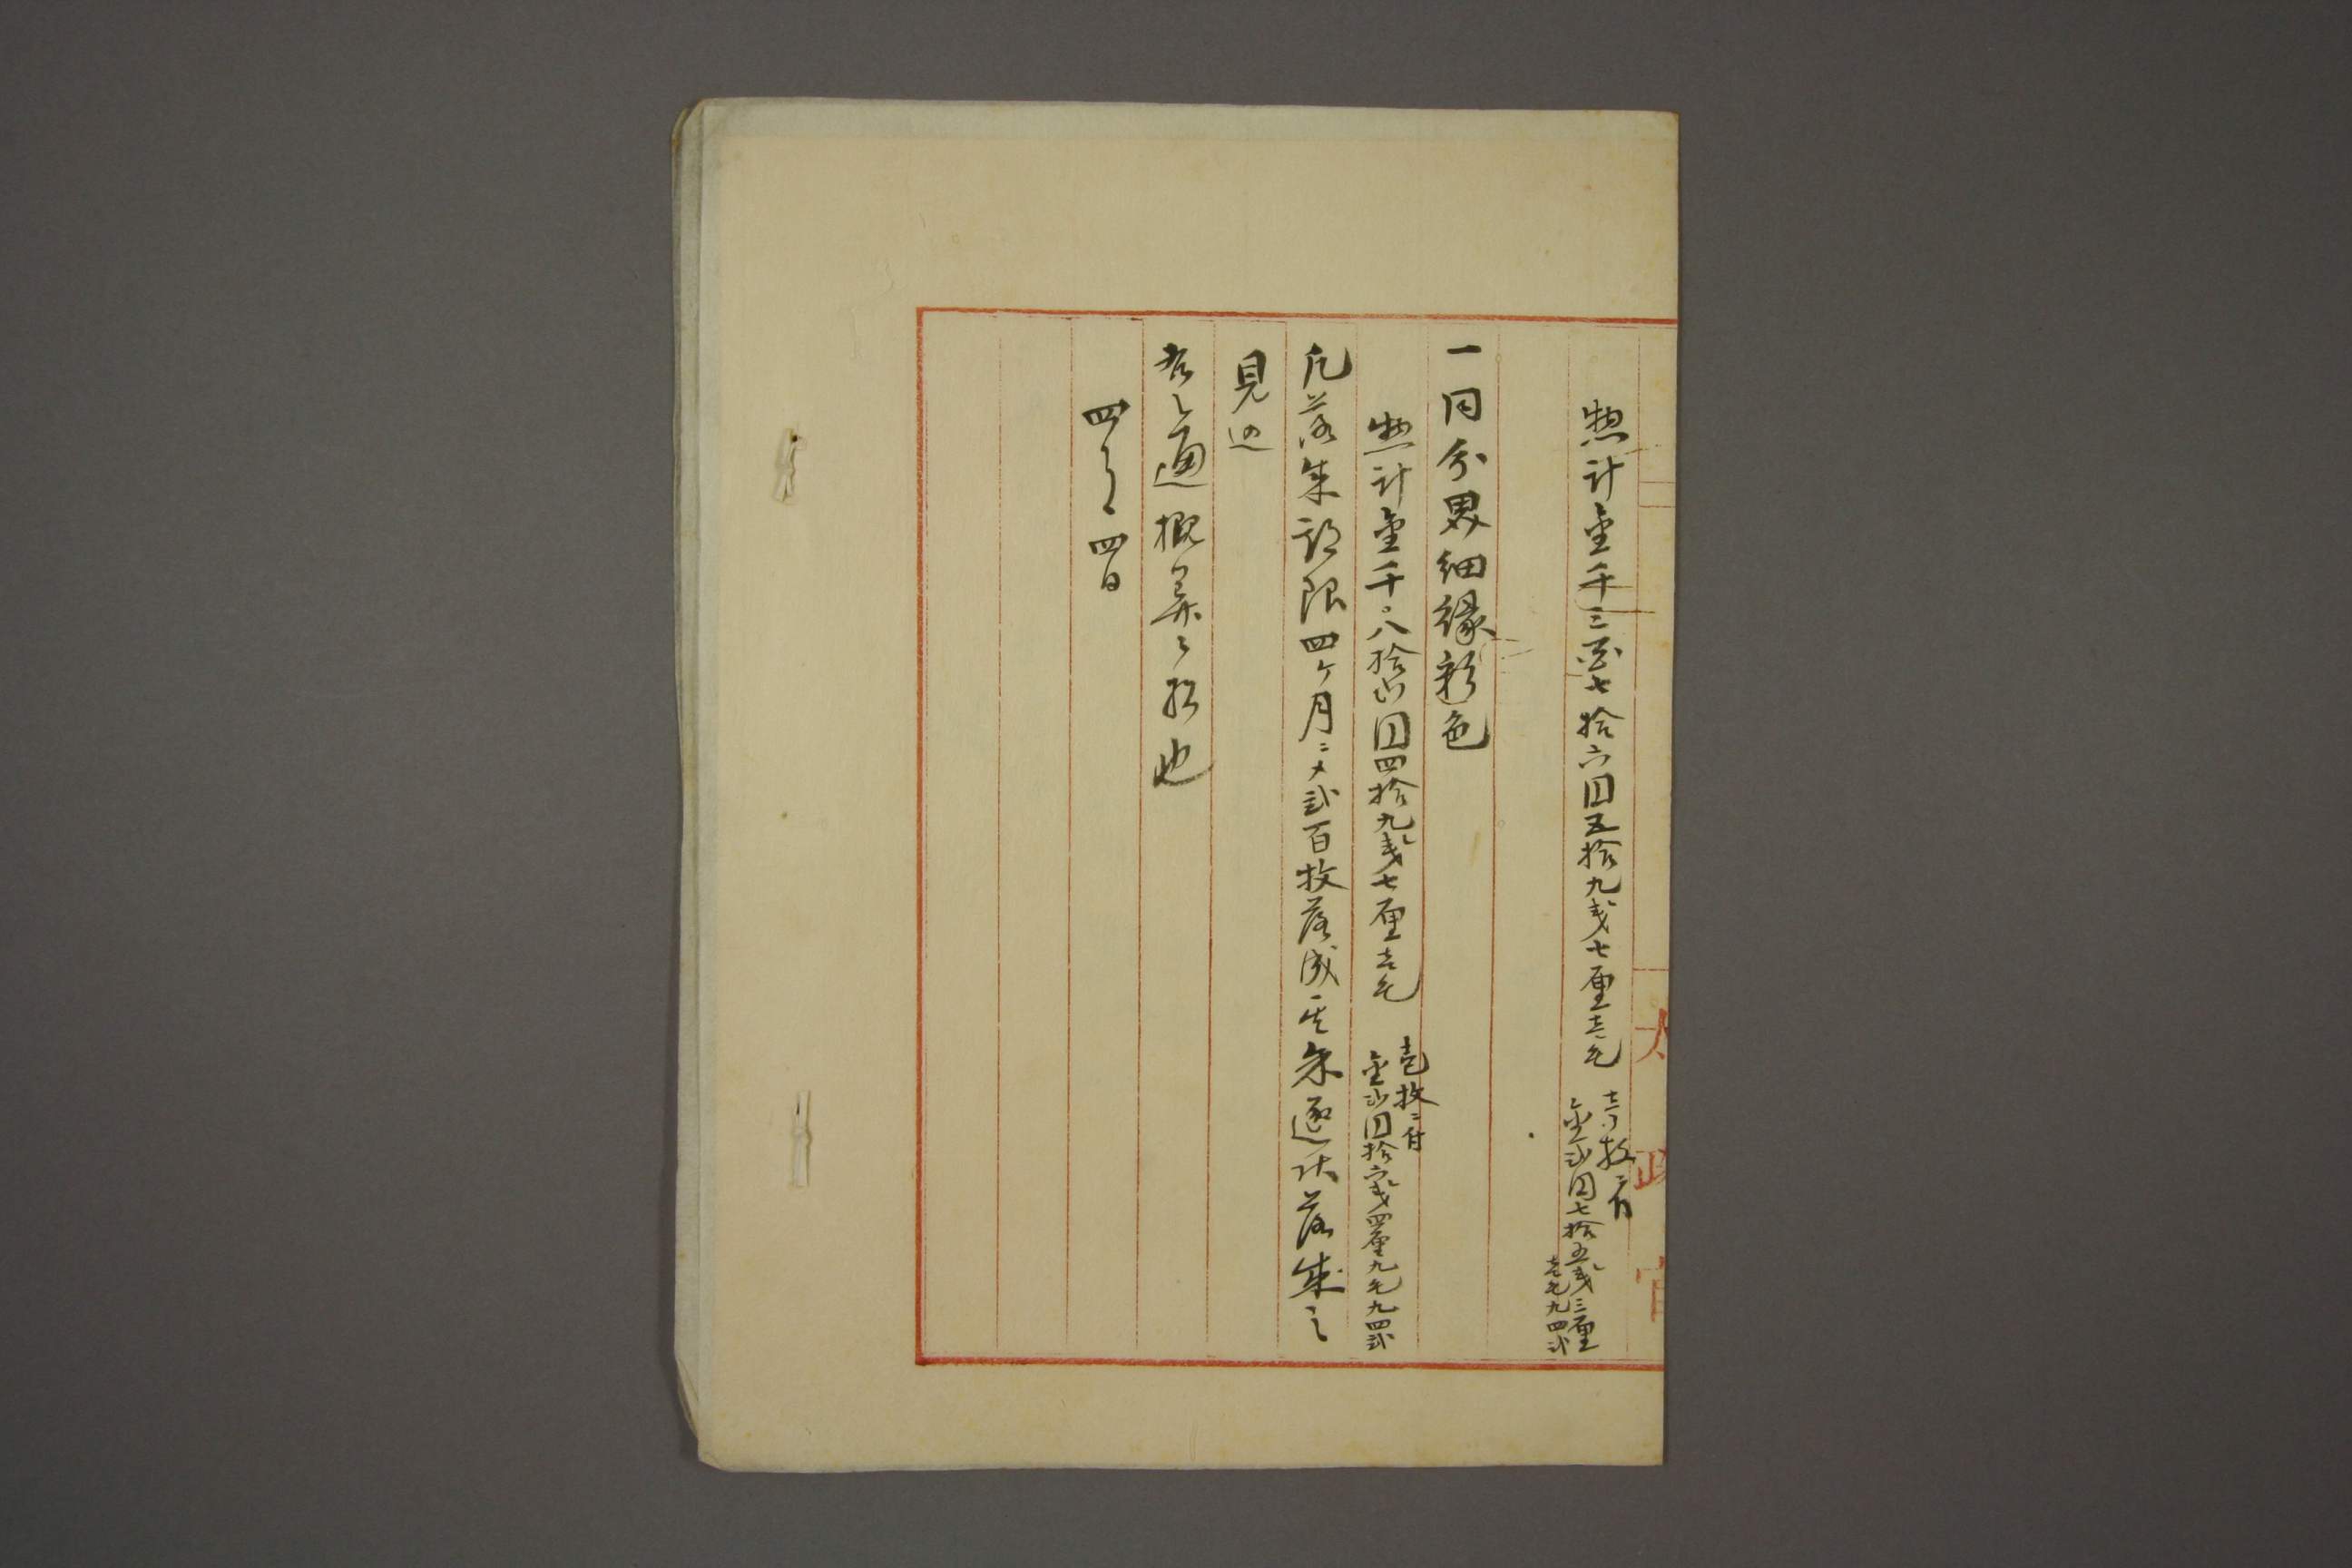 太政官
惣計金千三百七拾六円五拾九銭七厘壱毛
壱枚ニ付
金弐円七拾五銭三厘
壱毛九四弐
一同分界細縁彩色
惣計金千〇八拾弐円四拾九銭七厘壱毛
壱枚ニ付
金弐円拾六銭四厘九毛九四弐
凡落成期限四ヶ月ニメ弐百枚落成
逐次落成之
見込
右之通概算候也
四月四日